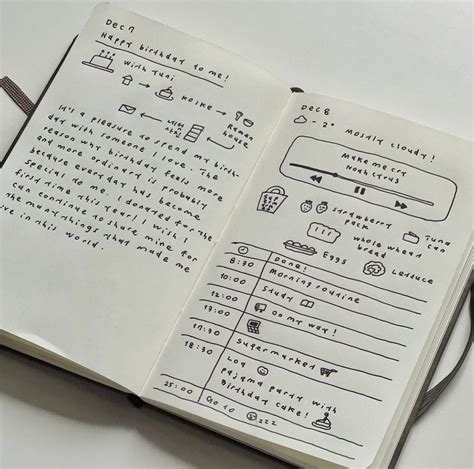 Dec 7
Happy birthday to me!
with Yuqi
Koike
Ramen
house
It's a pleasure to spend my birth-
day with someone I love. The
reason why birthday feels more
and more ordinary is probably
because everyday has become
special to me. I donated for the
first time this year! I wish I
can continue to share mine for
the many things that made me
live in this world.
Dec 8
- 2°
Mostly cloudy!
Make me cry
Noah Cyrus
Strawberry
pack
Tuna
can
whole wheat
bread
Eggs
Lettuce
Done!
8:30 Morning routine
10:00 Study
12:00 On my way!
17:00
17:30 Supermarket
18:30
Pajama party with
Birthday cake!
25:00 Go to zzz